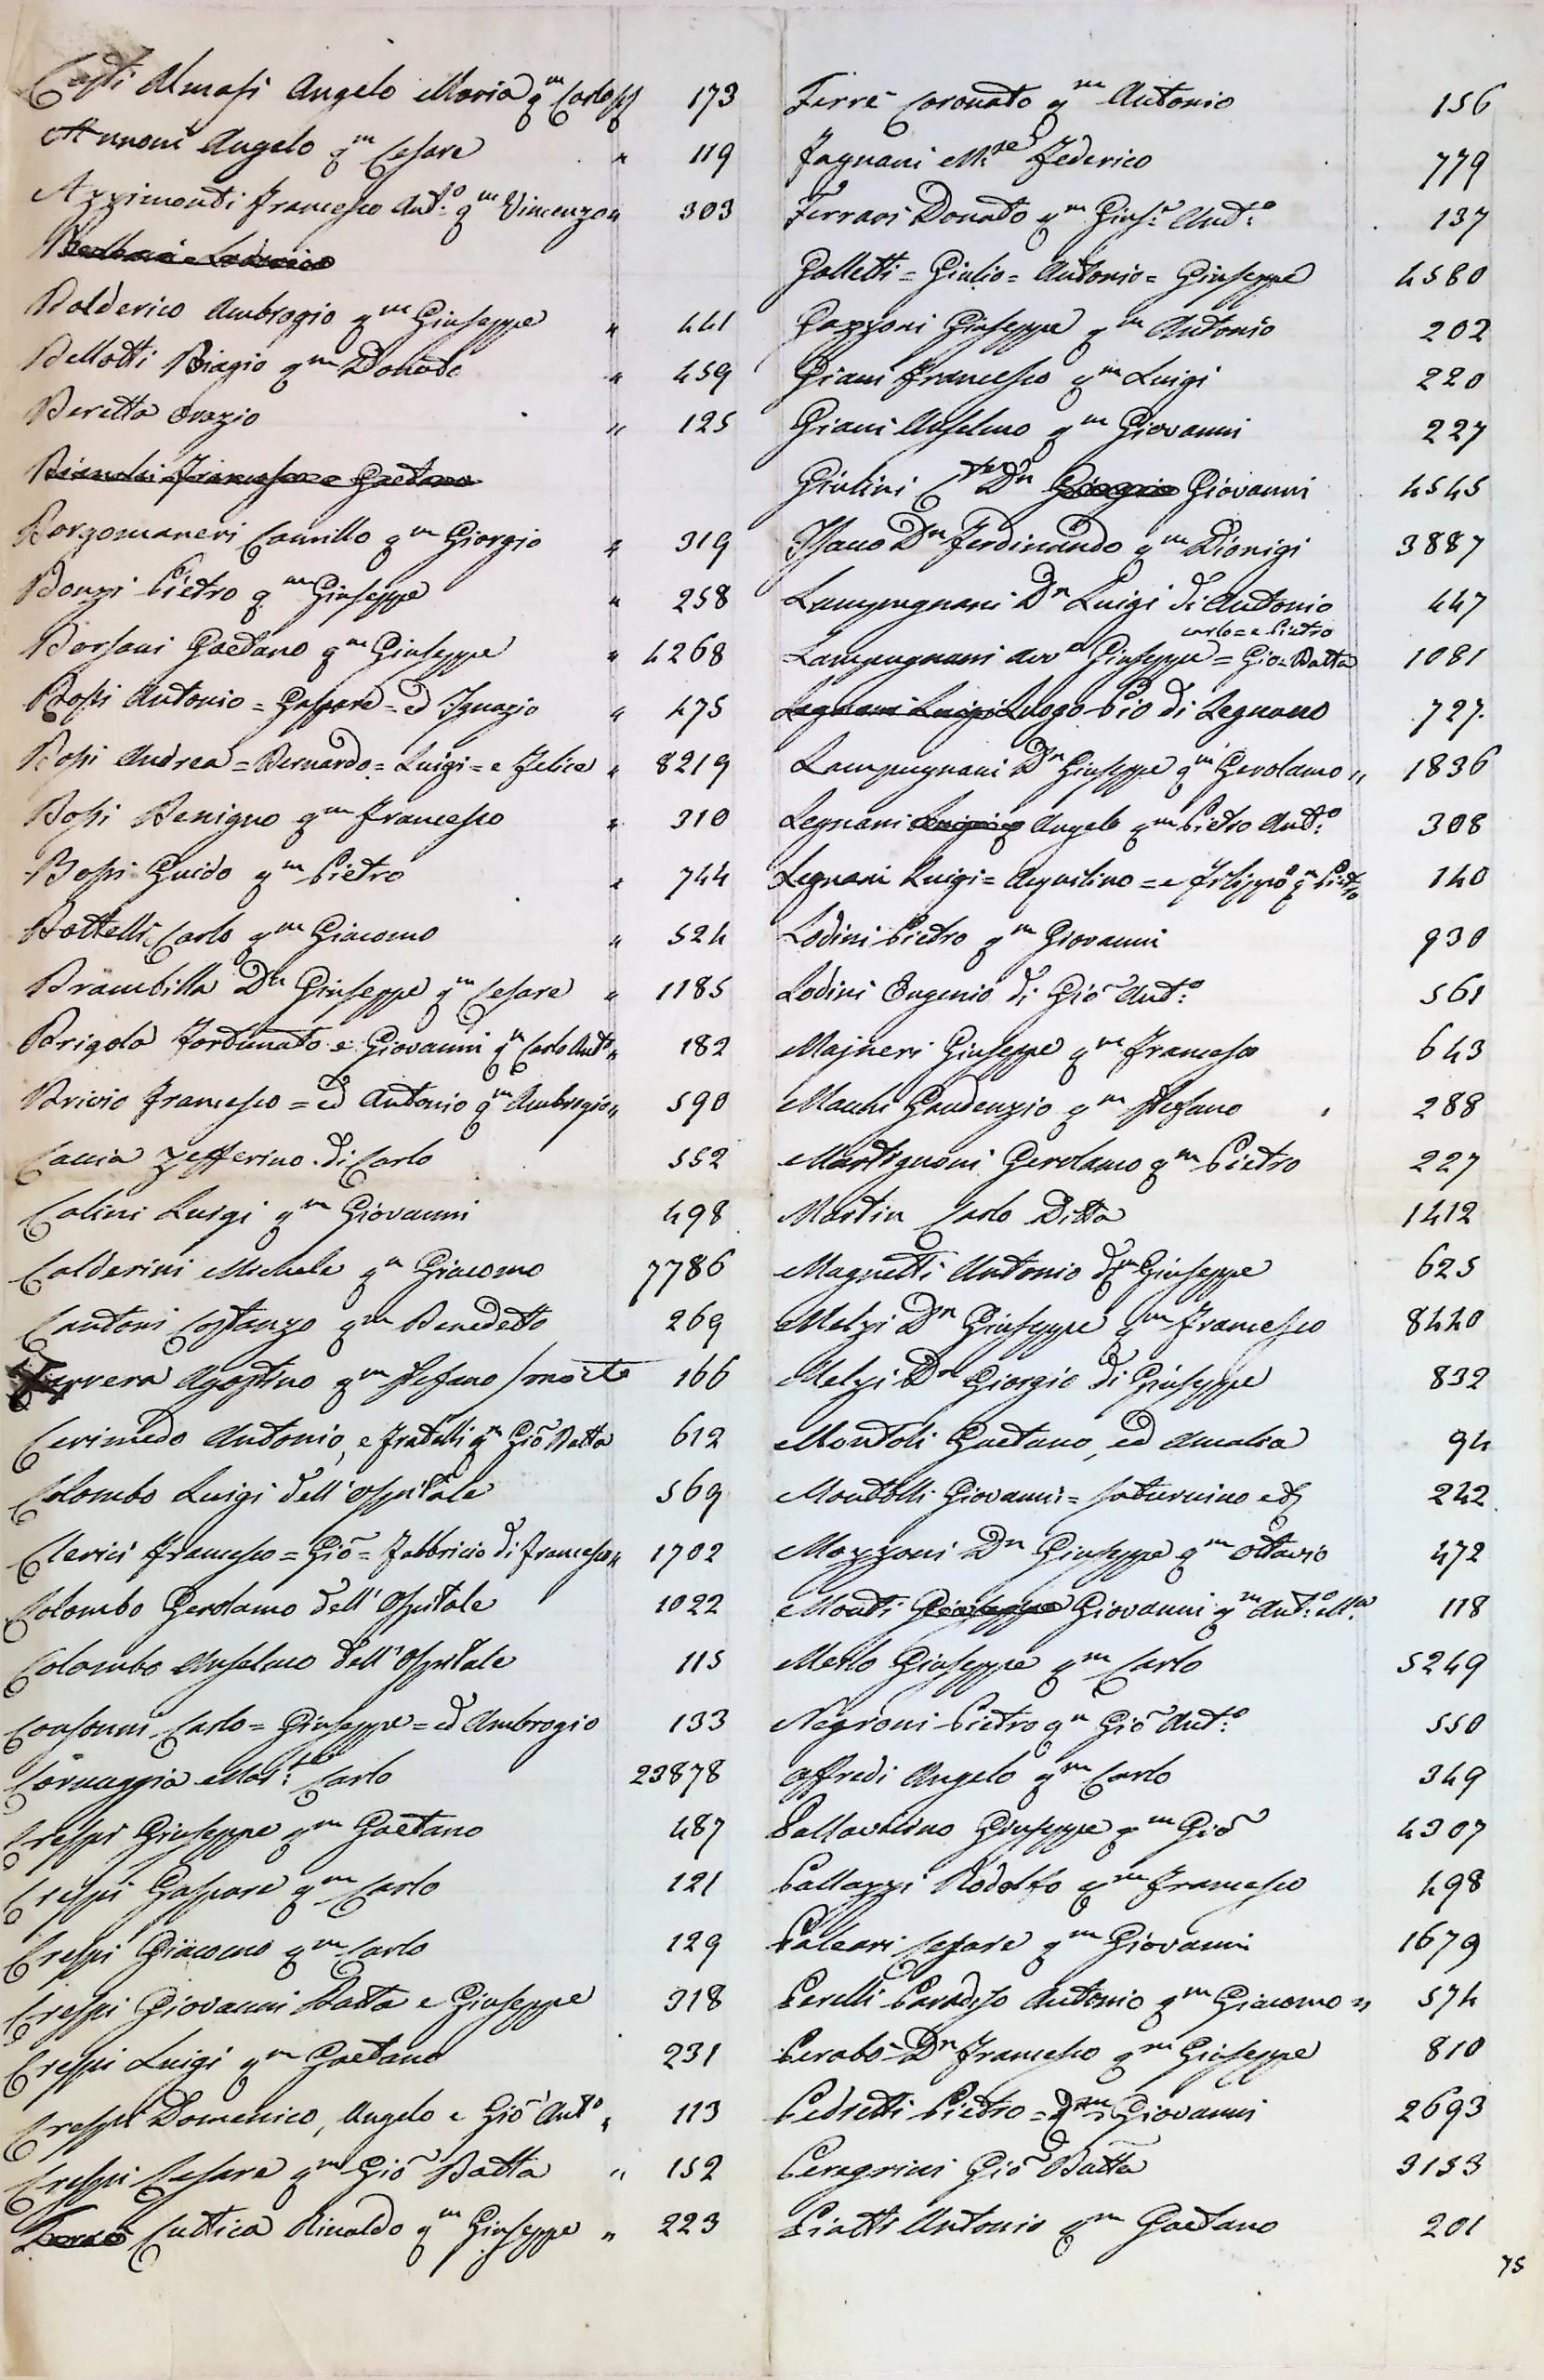 Casti Almasi Angelo Maria qm Carlo 173
Annoni Angelo qm Cesare " 119
Azzimonti Francesco Ant.o qm Vincenzo " 303
Balderico Ambrogio qm Giuseppe " 441
Bellotti Biagio qm Donato " 459
Beretta Orazio " 125
Bianchi Francesco e Gaetano
Borgomaneri Camillo qm Giorgio " 319
Bonzi Pietro qm Giuseppe " 258
Borsani Gaetano qm Giuseppe " 4268
Bossi Antonio = Gaspare = ed Ignazio " 475
Bossi Andrea = Bernardo = Luigi = e Felice " 8219
Bossi Benigno qm Francesco " 310
Bossi Guido qm Pietro " 744
Bottelli Carlo qm Giacomo " 524
Brambilla Dn Giuseppe qm Cesare " 1185
Brigola Fortunato e Giovanni qm Carlo Ant.o " 182
Brivio Francesco = ed Antonio qm Ambrogio " 590
Caccia Zefferino di Carlo 552
Calini Luigi qm Giovanni 498
Calderini Michele qm Giacomo 7786
Cantoni Costanzo qm Benedetto 269
Carrera Agostino qm Stefano / morto 166
Cerimedo Antonio, e fratelli qm Gio Batta 612
Colombo Luigi dell'Ospitale 569
Clerici Francesco = Gio = Fabbricio di Francesco " 1702
Colombo Gerolamo dell'Ospitale 1022
Colombo Anselmo dell'Ospitale 115
Consonni Carlo = Giuseppe = ed Ambrogio 133
Cornaggia Mar:se Carlo 23878
Crespi Giuseppe qm Gaetano 487
Crespi Gaspare qm Carlo 121
Crespi Giacomo qm Carlo 129
Crespi Giovanni Batta e Giuseppe 318
Crespi Luigi qm Gaetano 231
Crespi Domenico, Angelo e Gio Ant.o " 113
Crespi Cesare qm Gio Batta " 152
Cuttica Rinaldo qm Giuseppe " 223
Ferrè Coronato qm Antonio 156
Fagnani M.se Federico 779
Ferrari Donato qm Gius.e Ant.o 137
Galletti = Giulio = Antonio = Giuseppe 4580
Gazzoni Giuseppe qm Antonio 202
Giani Francesco qm Luigi 220
Giani Anselmo qm Giovanni 227
Giulini Dn Giorgio Giovanni 4545
Isacco Dn Ferdinando qm Dionigi 3887
Lampugnani Dn Luigi di Antonio 447
Carlo = e Pietro
Lampugnani avv Giuseppe = Gio: Batta 1081
Legnani Luigi Luogo Pio di Legnano 727.
Lampugnani Dn Giuseppe qm Gerolamo " 1836
Legnani Luigi Angelo qm Pietro Ant.o 308
Legnani Luigi = Aquilino = e Filippo qm Pietro 140
Lodini Pietro qm Giovanni 930
Lodini Eugenio di Gio Ant.o 561
Majneri Giuseppe qm Francesco 643
Macchi Gaudenzio qm Stefano 288
Martignoni Gerolamo qm Pietro 227
Martin Carlo Ditta 1412
Magnetti Antonio qm Giuseppe 625
Melzi Dn Giuseppe qm Francesco 8440
Melzi Dn Giorgio di Giuseppe 832
Montoli Gaetano, ed Amalia 94
Montolli Giovanni = Saturnino e 242
Mozzoni Dn Giuseppe qm Ottavio 472
Monti Giuseppe Giovanni qm Ant.o M.a 118
Merlo Giuseppe qm Carlo 5249
Negroni Pietro qm Gio Ant.o 550
Offredi Angelo qm Carlo 349
Pallavicino Giuseppe qm Gio 4307
Pallazzi Rodolfo qm Francesco 498
Paleari Cesare qm Giovanni 1679
Perelli Paradiso Antonio qm Giacomo " 574
Perabò Dn Francesco qm Giuseppe 810
Pedretti Pietro = qm Giovanni 2693
Peregrini Gio Batta 3153
Piatti Antonio qm Gaetano 201
75